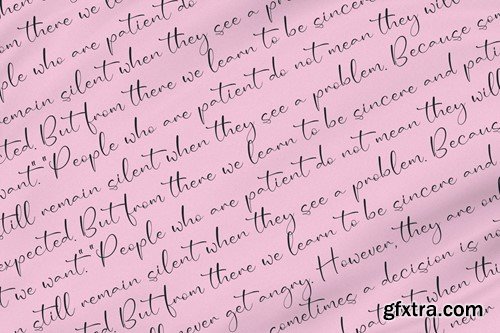 from there we learn to
silent when they see a p
ple who are patient do
remain silent when they see a problem. Because
cted. But from there we learn to be sincere
want." "People who are patient do not mean they will
still remain silent when they see a problem. Because so
expected. But from there we learn to be sincere and patie
t we want." "People who are patient do not mean they will
still remain silent when they see a problem. Because
expected. But from there we learn to be sincere and
never get angry. However, they are on
sometimes a decision is no
when this
gfxtra.com